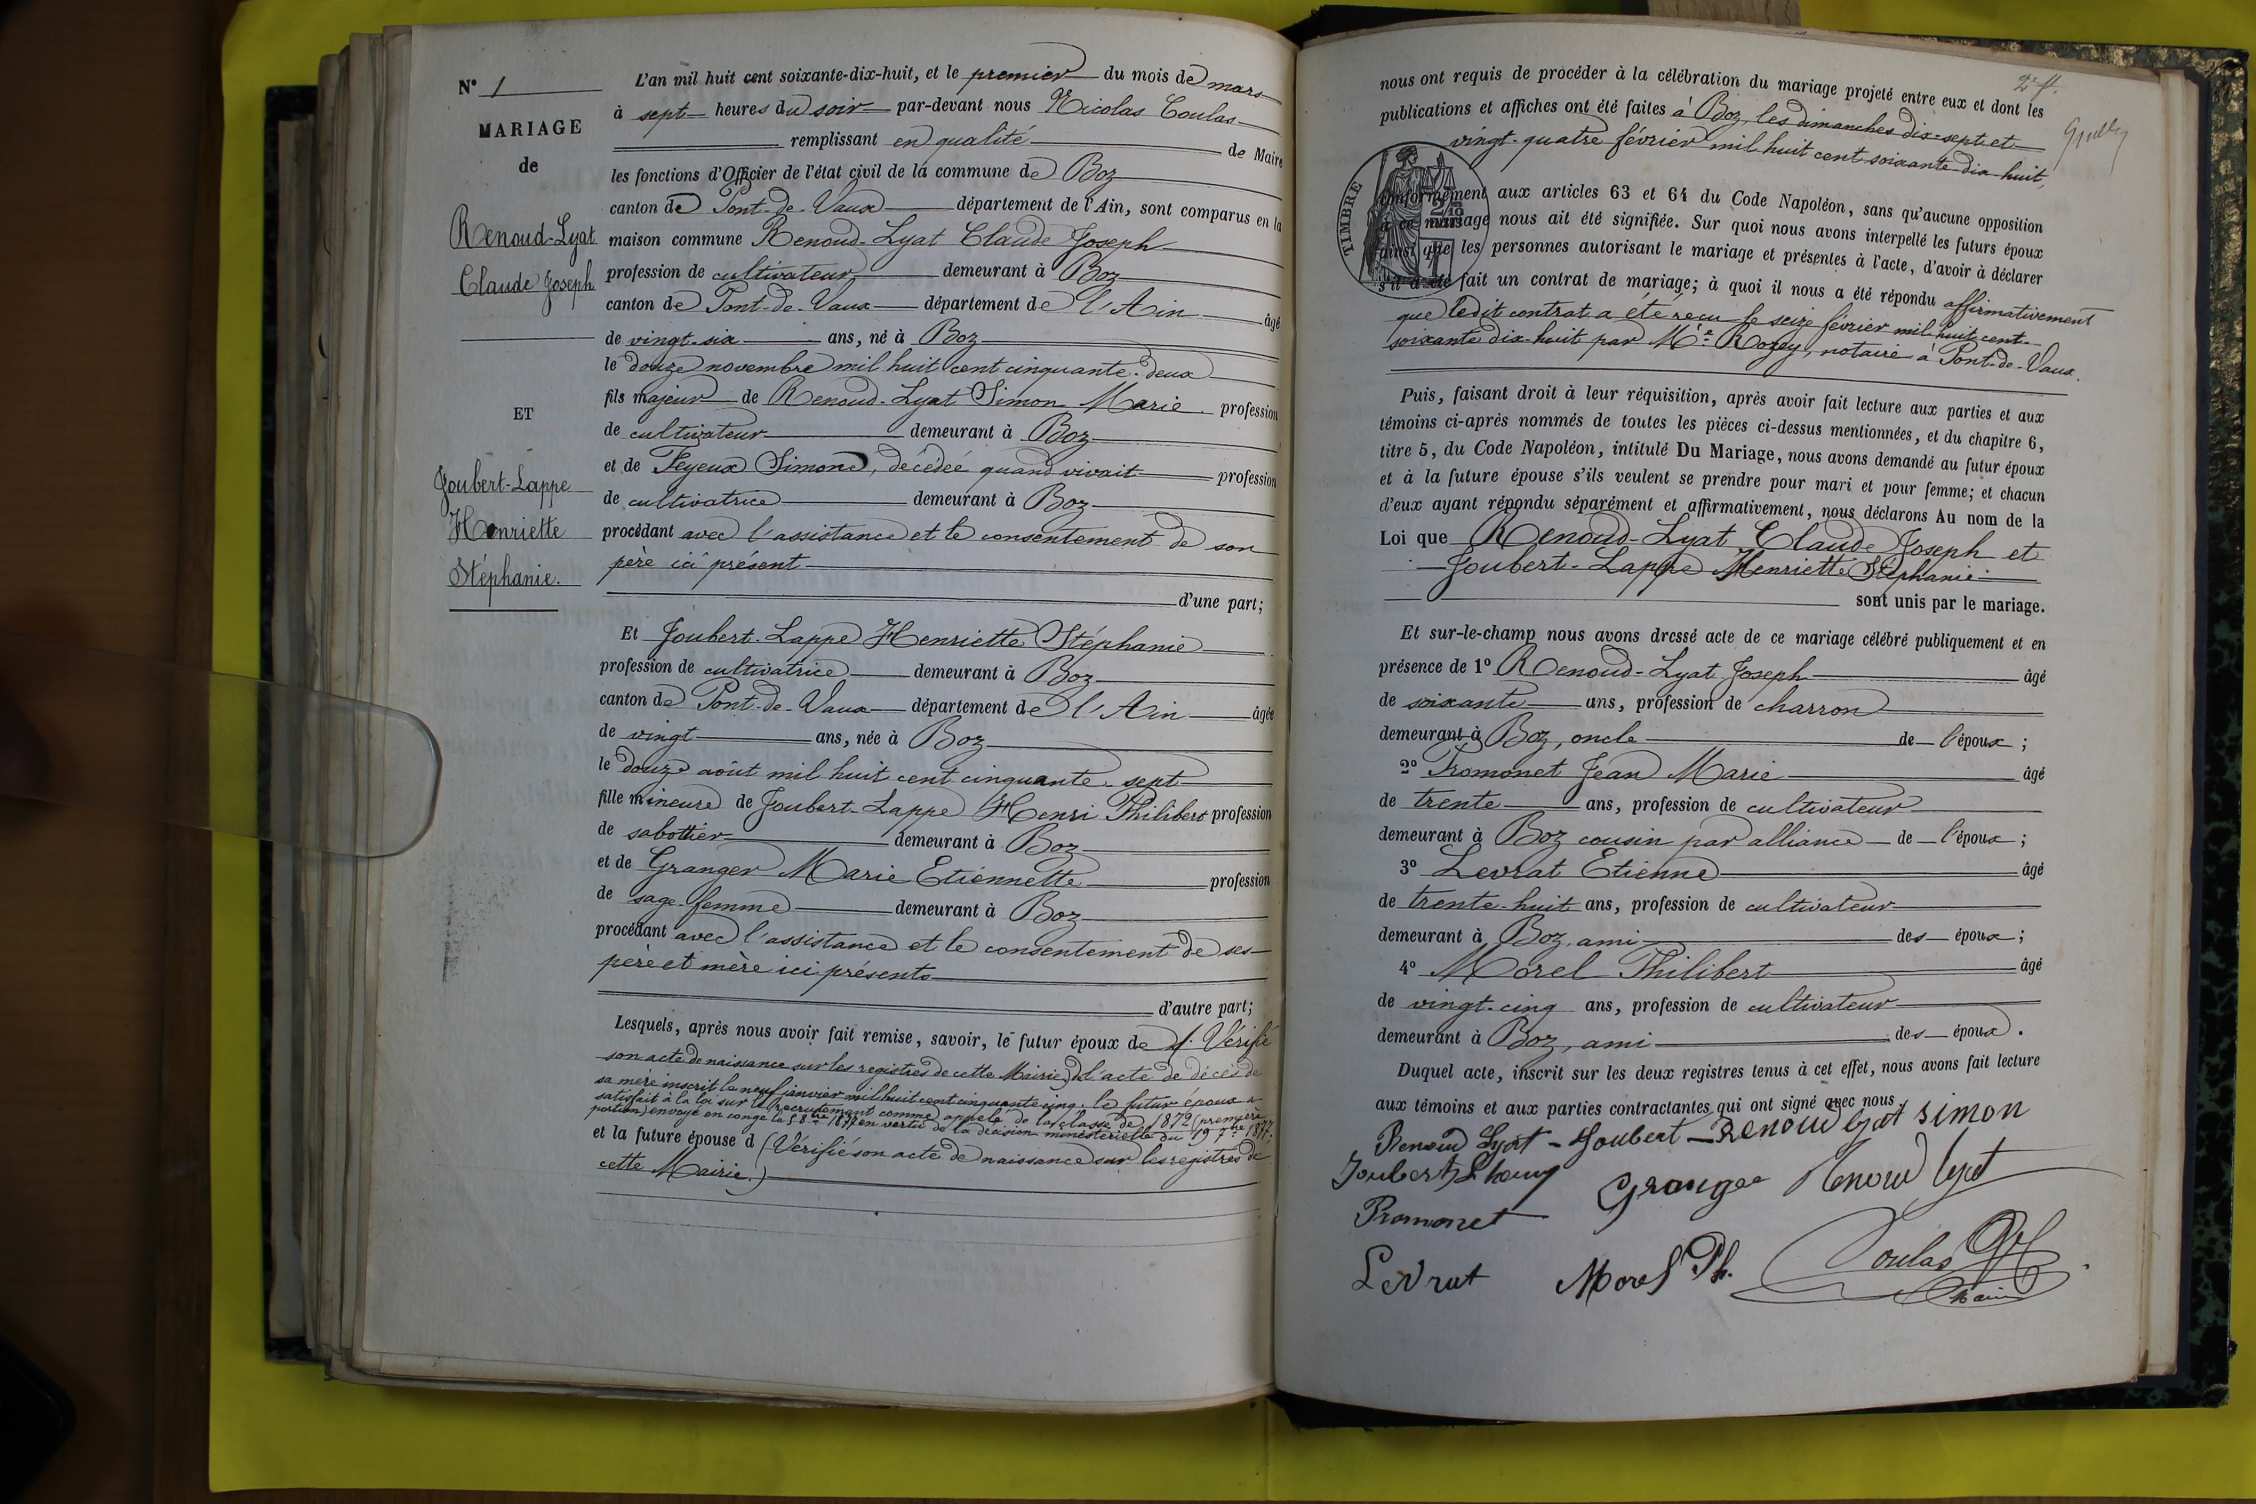 N° 1
MARIAGE
de
Renoud-Lyat
Claude Joseph
ET
Joubert-Lappe
Henriette
Stéphanie.
L'an mil huit cent soixante-dix-huit, et le premier du mois de mars
à sept heures du soir par-devant nous Nicolas Coulas
remplissant en qualité de Maire
les fonctions d'Officier de l'état civil de la commune de Boz
canton de Pont-de-Vaux département de l'Ain, sont comparus en la
maison commune Renoud-Lyat Claude Joseph
profession de cultivateur demeurant à Boz
canton de Pont-de-Vaux département de l'Ain âgé
de vingt-six ans, né à Boz
le douze novembre mil huit cent cinquante-deux
fils majeur de Renoud-Lyat Simon Marie profession
de cultivateur demeurant à Boz
et de Feyeux Simone, décédée quand vivait profession
de cultivatrice demeurant à Boz
procédant avec l'assistance et le consentement de son
père ici présent
d'une part;
Et Joubert-Lappe Henriette Stéphanie
profession de cultivatrice demeurant à Boz
canton de Pont-de-Vaux département de l'Ain âgée
de vingt ans, née à Boz
le douze août mil huit cent cinquante-sept
fille mineure de Joubert-Lappe Henri Philibert profession
de sabottier demeurant à Boz
et de Granger Marie Etiennette profession
de sage-femme demeurant à Boz
procédant avec l'assistance et le consentement de ses
père et mère ici présents
d'autre part;
Lesquels, après nous avoir fait remise, savoir, le futur époux de Vérifié
son acte de naissance sur les registres de cette Mairie) de l'acte de décès de
sa mère inscrit le neuf janvier mil huit cent cinquante cinq. le futur époux a
satisfait à la loi sur le recrutement comme appelé de la classe de 1872 (première
portion) envoyé en congé le 8bre 1877 en vertu de la décision ministérielle du 19 7bre 1877;
et la future épouse d (Vérifié son acte de naissance sur les registres de
cette Mairie.)
2e ff.
nous ont requis de procéder à la célébration du mariage projeté entre eux et dont les
publications et affiches ont été faites à Boz, les dimanches dix-sept et
vingt-quatre février mil huit cent soixante-dix-huit,
TIMBRE
conformément aux articles 63 et 64 du Code Napoléon, sans qu'aucune opposition
à ce mariage nous ait été signifiée. Sur quoi nous avons interpellé les futurs époux
ainsi que les personnes autorisant le mariage et présentes à l'acte, d'avoir à déclarer
s'il a été fait un contrat de mariage; à quoi il nous a été répondu affirmativement
que ledit contrat a été reçu le seize février mil huit cent
soixante dix-huit par Me Rozey, notaire à Pont-de-Vaux.
Puis, faisant droit à leur réquisition, après avoir fait lecture aux parties et aux
témoins ci-après nommés de toutes les pièces ci-dessus mentionnées, et du chapitre 6,
titre 5, du Code Napoléon, intitulé Du Mariage, nous avons demandé au futur époux
et à la future épouse s'ils veulent se prendre pour mari et pour femme; et chacun
d'eux ayant répondu séparément et affirmativement, nous déclarons Au nom de la
Loi que Renoud-Lyat Claude Joseph et
Joubert-Lappe Henriette Stéphanie
sont unis par le mariage.
Et sur-le-champ nous avons dressé acte de ce mariage célébré publiquement et en
présence de 1° Renoud-Lyat Joseph âgé
de soixante ans, profession de charron
demeurant à Boz, oncle de l'époux;
2° Promonet Jean Marie âgé
de trente ans, profession de cultivateur
demeurant à Boz cousin par alliance de l'époux;
3° Levrat Etienne âgé
de trente-huit ans, profession de cultivateur
demeurant à Boz, ami des époux;
4° Morel Philibert âgé
de vingt-cinq ans, profession de cultivateur
demeurant à Boz, ami des époux.
Duquel acte, inscrit sur les deux registres tenus à cet effet, nous avons fait lecture
aux témoins et aux parties contractantes qui ont signé avec nous.
Renoud Lyat - Joubert - Renoud lyat simon
Joubert Granger Renoud lyat
Promonet
Levrat Morel Ph. Coulas
Maire